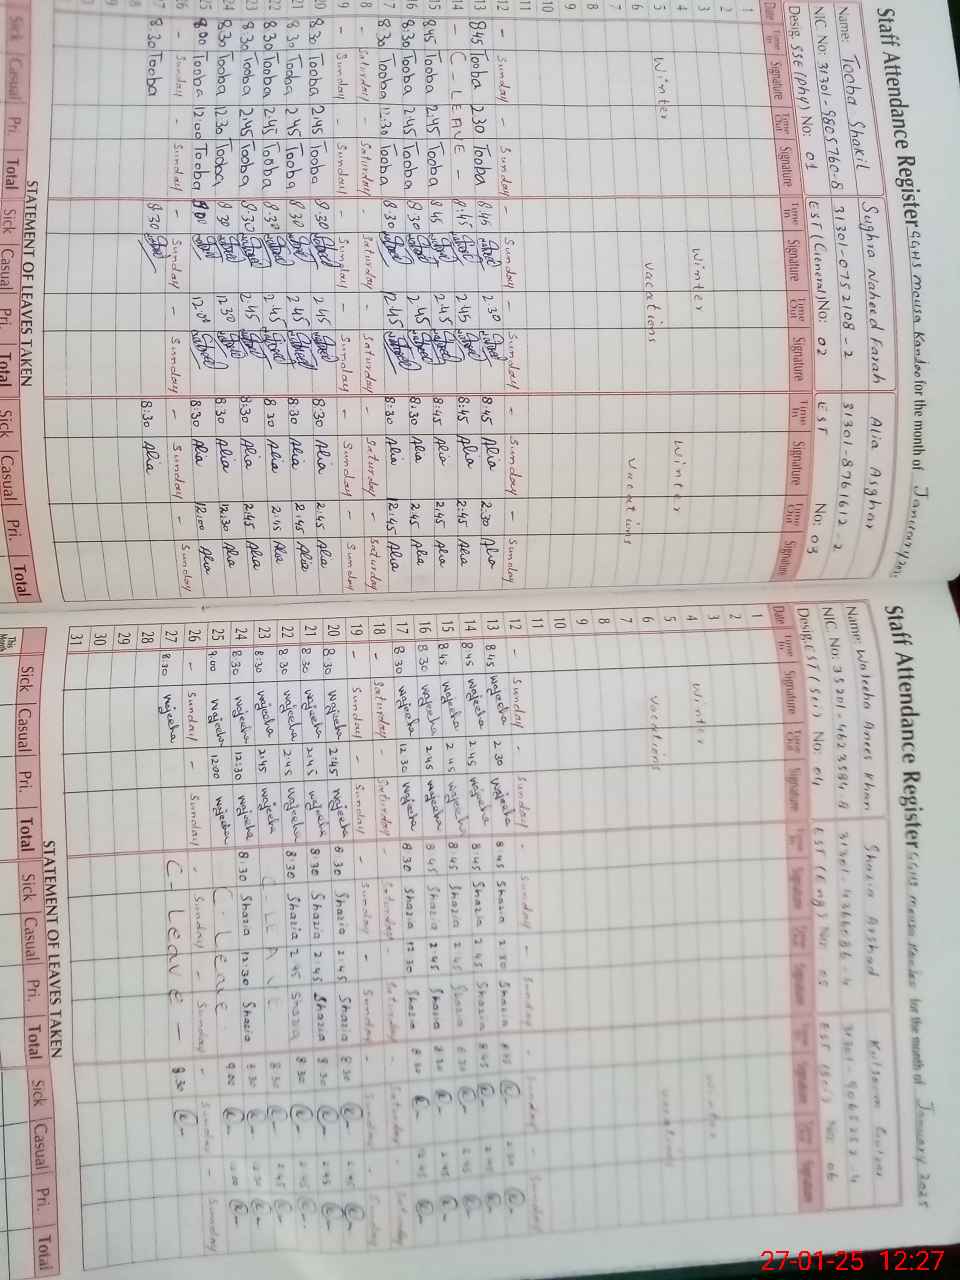 Staff Attendance Register GGHS mousa Kandoo for the month of January 2025
Name: Tooba Shakil Sughra Naheed Farah Alia Asghar
NIC No: 31301-9805760-8 31301-0752108-2 31301-8761612-2
Desig. SSE(Phy) No: 01 EST (General) No: 02 EST No: 03
Date Time In Signature Time Out Signature Time In Signature Time Out Signature Time In Signature Time Out Signature
1
2
3 Winter
4 Winter
5 Winter vacations
6 vacations
7
8
9
10
11
12 - Sunday - Sunday - Sunday - Sunday - Sunday - Sunday
13 8:45 Tooba 2.30 Tooba 8:45 2.30 8:45 Alia 2.30 Alia
14 - C-LEAVE - 8:45 2.45 8:45 Alia 2:45 Alia
15 8:45 Tooba 2.45 Tooba 8:45 2.45 8:45 Alia 2:45 Alia
16 8:30 Tooba 2.45 Tooba 8:30 2.45 8:30 Alia 2.45 Alia
17 8:30 Tooba 12:30 Tooba 8:30 12.45 8:30 Alia 12:45 Alia
18 - Saturday - Saturday - Saturday - Saturday - Saturday - Saturday
19 - Sunday - Sunday - Sunday - Sunday - Sunday - Sunday
20 8:30 Tooba 2:45 Tooba 8:30 2.45 8:30 Alia 2:45 Alia
21 8:30 Tooba 2.45 Tooba 8:30 2.45 8:30 Alia 2:45 Alia
22 8:30 Tooba 2.45 Tooba 8:30 2.45 8:30 Alia 2:45 Alia
23 8:30 Tooba 2.45 Tooba 8:30 2.45 8:30 Alia 2:45 Alia
24 8:30 Tooba 12.30 Tooba 8:30 12.30 8:30 Alia 12.30 Alia
25 8:00 Tooba 12:00 Tooba 12:00 8:30 Alia 12:00 Alia
26 - Sunday - Sunday - Sunday - Sunday - Sunday - Sunday
27 8:30 Tooba 8:30 8:30 Alia
28
29
STATEMENT OF LEAVES TAKEN
Sick Casual Pri. Total Sick Casual Pri. Total Sick Casual Pri. Total
Staff Attendance Register GGHS mousa Kandoo for the month of January 2025
Name: Wajeeha Anees Khan Shazia Arshad Kulsoom
NIC No: 35201-4623584-8
Desig. EST (Sci) No: 04 EST (Eng) No: 05 EST (Sci) No: 06
Date Time In Signature Time Out Signature
1
2
3 Winter
4 Winter
5 vacations
6 vacations
7
8
9
10
11
12 - Sunday - Sunday - Sunday - Sunday - Sunday - Sunday
13 8:45 wajeeha 2 30 wajeeha 8:45 Shazia 2 30 Shazia
14 8:45 wajeeha 2 45 wajeeha 8:45 Shazia 2 45 Shazia 8:45 2.45
15 8:45 wajeeha 2 45 wajeeha 8:45 Shazia 2 45 Shazia 8.30 2.45
16 8 30 wajeeha 2 45 wajeeha 8 45 Shazia 2 45 Shazia 8 30 2.45
17 8 30 wajeeha 12 30 wajeeha 8 30 Shazia 12 30 Shazia 8 30 12.45
18 - Saturday - Saturday - Saturday - Saturday - Saturday - Saturday
19 - Sunday - Sunday - Sunday - Sunday - Sunday - Sunday
20 8.30 wajeeha 2:45 wajeeha 8 30 Shazia 2:45 Shazia 8 30 2.45
21 8 30 wajeeha 2:45 wajeeha 8:30 Shazia 2 45 Shazia 8 30 2.45
22 8.30 wajeeha 2:45 wajeeha 8:30 Shazia 2 45 Shazia 8 30 2.45
23 8:30 wajeeha 2:45 wajeeha C-LEAVE 8 30 2.45
24 8 30 wajeeha 12:30 wajeeha 8:30 Shazia 12.30 Shazia 8 30
25 9.00 wajeeha 12:00 wajeeha C-Leave 9.00
26 - Sunday - Sunday - Sunday - Sunday - Sunday - Sunday
27 8:30 wajeeha C-Leave - 8 30
28
29
30
31
STATEMENT OF LEAVES TAKEN
This Month Sick Casual Pri. Total Sick Casual Pri. Total Sick Casual Pri. Total
27-01-25 12:27